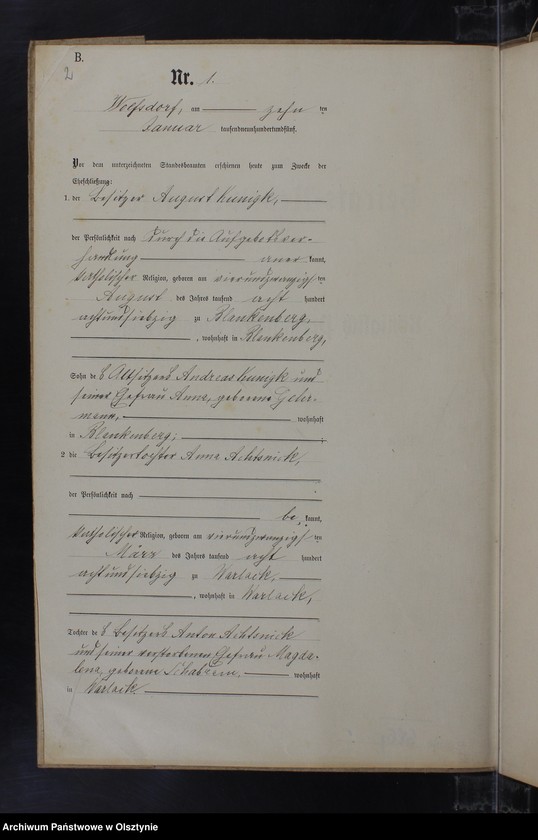 B.
2
Nr. 1.
Wolfsdorf, am zehn ten
Januar tausendneunhundertundfünf.
Vor dem unterzeichneten Standesbeamten erschienen heute zum Zwecke der
Eheschließung:
1. der Besitzer August Kunigk,
der Persönlichkeit nach durch die Aufgebotsver-
handlung aner kannt,
katholischer Religion, geboren am vierundzwanzigsten
August des Jahres tausend acht hundert
achtundsiebzig zu Blankenberg,
, wohnhaft in Blankenberg,
Sohn des Altsitzers Andreas Kunigk und
seiner Ehefrau Anna, geborene
mann, wohnhaft
in Blankenberg;
2. die Besitzertochter Anna Achtsnick,
der Persönlichkeit nach
be kannt,
katholischer Religion, geboren am vierundzwanzigsten
März des Jahres tausend acht hundert
achtundsiebzig zu Warlack,
, wohnhaft in Warlack,
Tochter des Besitzers Anton Achtsnick
und seiner verstorbenen Ehefrau Magda-
lena, geborene wohnhaft
in Warlack
Archiwum Państwowe w Olsztynie